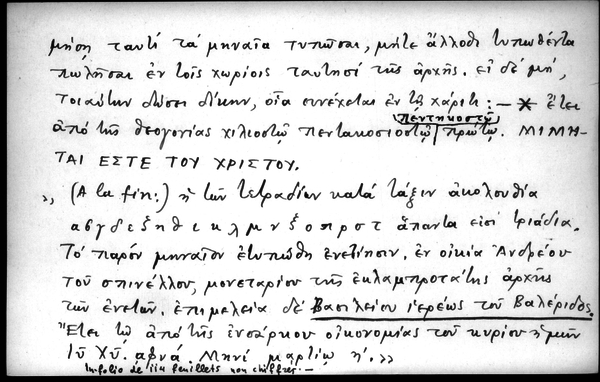 μήση ταυτί τὰ μηναῖα τυπῶσαι, μήτε ἄλλοθι τυπωθέντα
πωλῆσαι ἐν τοῖς χωρίοις ταυτησί τῆς ἀρχῆς. εἰ δὲ μή,
τοιαύτην δώσει δίκην, οἵα συνέχεται ἐν τῇ χάριτι : — * ἔτει
πεντηκοστῷ
ἀπὸ τῆς θεογονίας χιλιοστῷ πεντακοσιοστῷ / πρώτῳ. ΜΙΜΗ-
ΤΑΙ ΕΣΤΕ ΤΟΥ ΧΡΙΣΤΟΥ.
» (A la fin:) ἡ τῶν τετραδίων κατά τάξιν ἀκολουθία
α β γ δ ε ζ η θ ι κ λ μ ν ξ ο π ρ σ τ ἅπαντα εἰσί τριάδια.
Τό παρόν μηναῖον ἐτυπώθη ἐνετίησιν, ἐν οἰκία Ἀνδρέου
τοῦ σπινέλλου, μονεταρίου τῆς ἐκλαμπροτάτης ἀρχῆς
τῶν ἐνετῶν. ἐπιμελεία δέ Βασιλείου ἱερέως τοῦ Βαλέριδος.
Ἔτει τῷ ἀπὸ τῆς ἐνσάρκου οἰκονομίας τοῦ κυρίου ἡμῶν
Ἰῦ Χῦ. αφνά. Μηνί μαρτίῳ ή. »
In folio de 114 feuillets non chiffrés. —